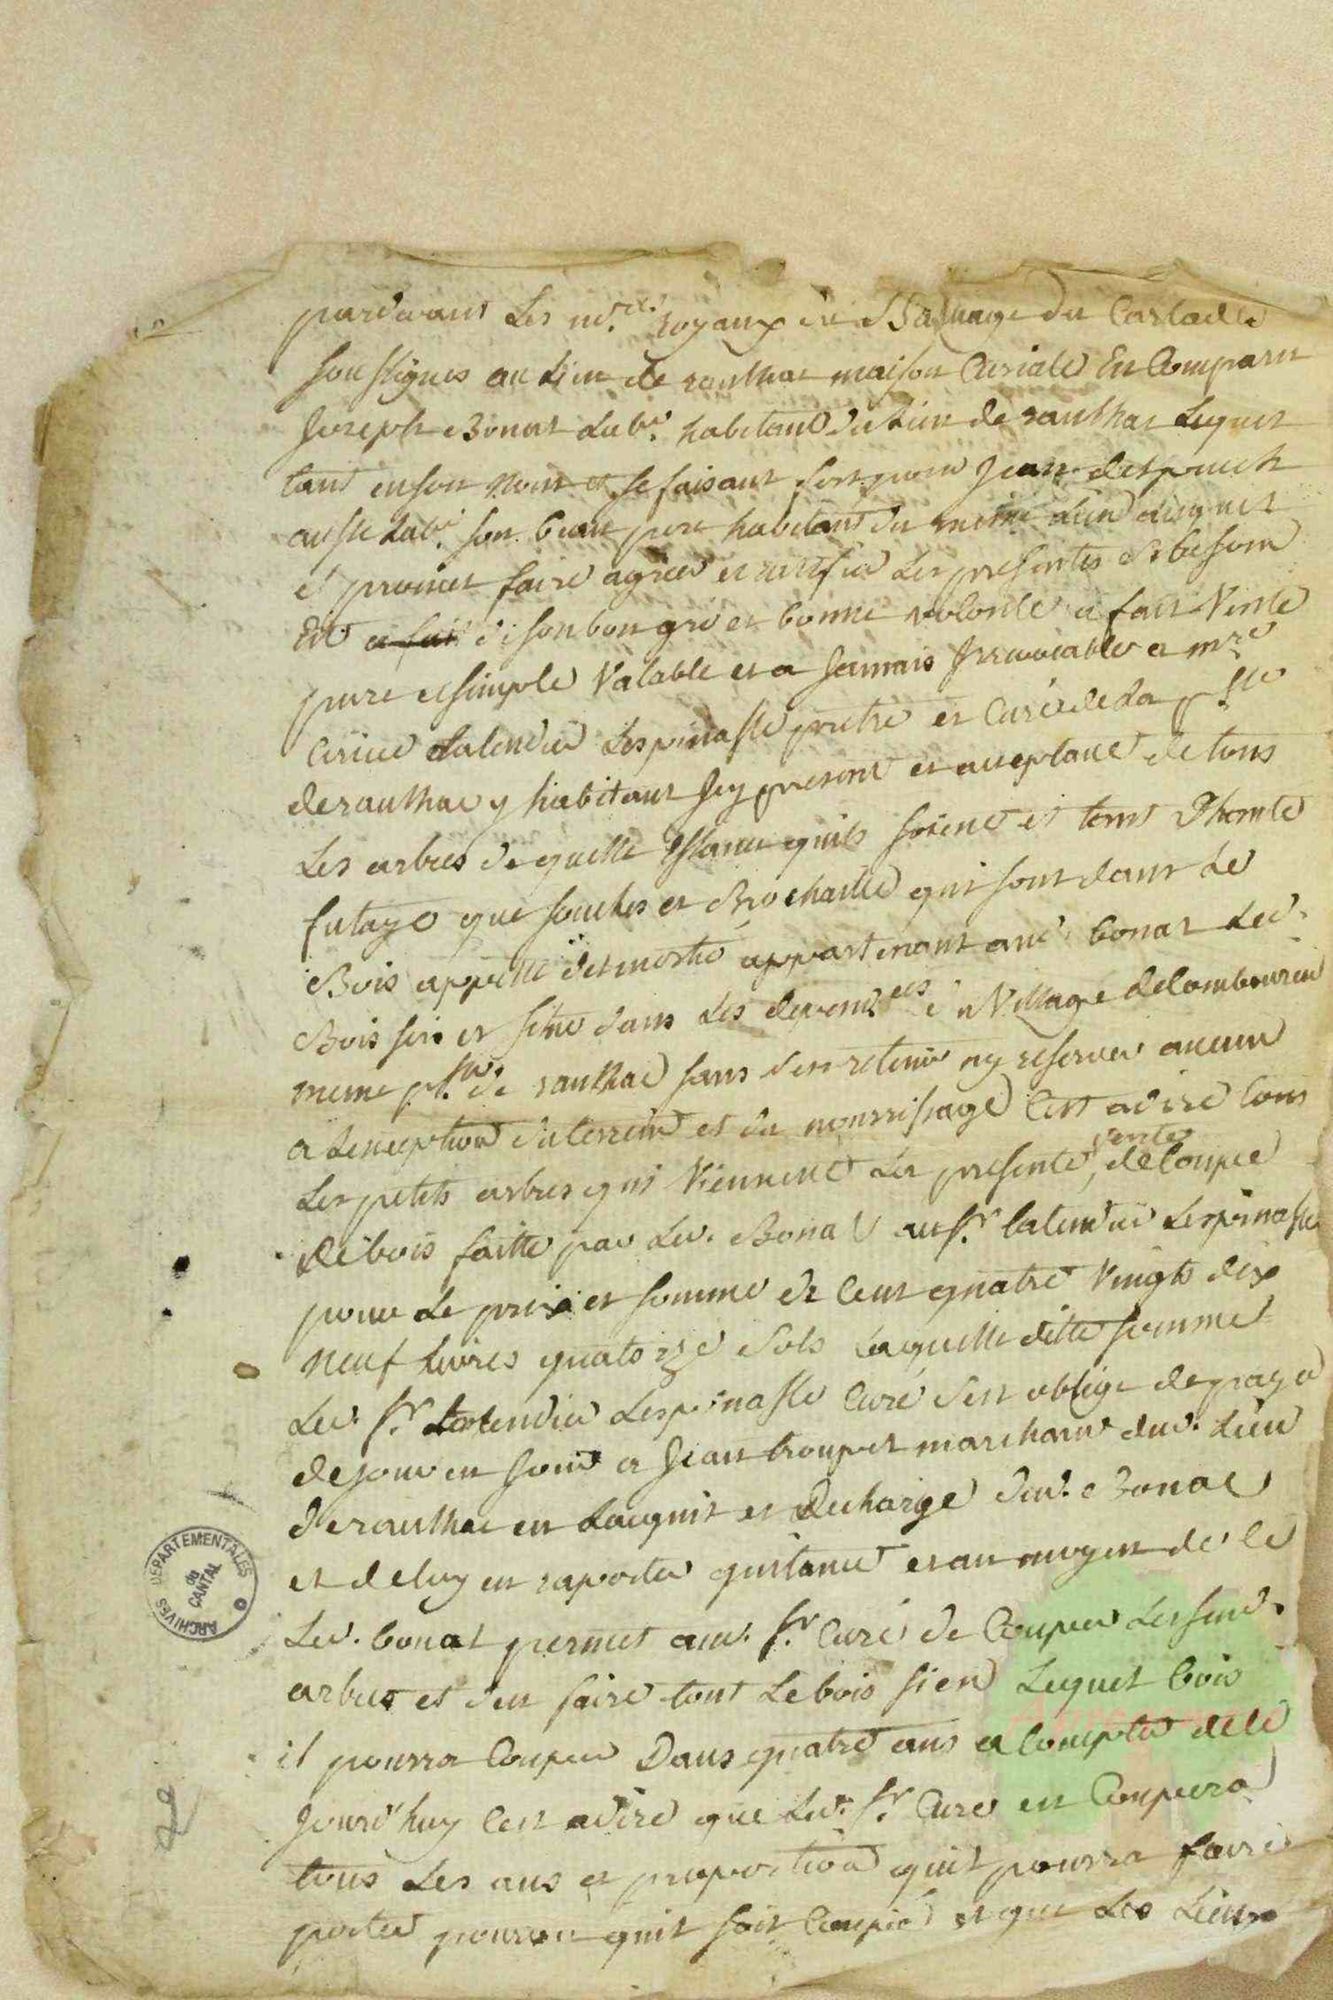 pardevant Les nres. royaux du Bailliage du Carladès
soussignes au Lieu de raulhac maison Curiale En Comparu
Joseph Bonat Labr. habitant du Lieu de raulhac Lequel
tant en son nom et se faisant fort pour Jean delpuech
aussi Labr. son beau pere habitant du meme Lieu duquel
il promet faire agréer et ratifier Les presentes si besoin
est a fait de son bon gré et bonne volonté a fait Vente
pure et simple Valable et a Jamais Irrevocable a mre
Lespinasse pretre et Curé de La psse
de raulhac y habitant Icy present et acceptant de tous
Les arbres de quelle Essance quils soient et tant d'hautte
futaye que souches et Brochaille qui sont dans Le
Bois appellé appartenant aud. bonat Led.
Bois sis et situé dans Les depences du Village de
meme psse de raulhac sans s'en retenir ny reserver aucun
a L'exception du terrein et du nourrissage C'est a dire tous
Les petits arbres qui Viennent La presente vente de Coupe
de bois faitte par Led. Bonat au Sr. Lespinasse
pour Le prix et somme de Cent quatre Vingts dix
neuf Livres quatorze sols Laquelle ditte somme
Led. Sr. Lespinasse Curé s'est obligé de payer
de jour en jour a Jean troupel marchand dud. Lieu
de raulhac en Lacquit et Decharge dud. Bonat
et de luy en raporter quittance et au moyen de Ce
Led. bonat permet aud. Sr. Curé de Couper Lesdd.
arbres et d'en faire tout Le bois sien Lequel bois
il pourra Couper Dans quatre ans a Compter de Ce
Jourd'huy C'est a dire que Led. Sr. Curé en Coupera
tous Les ans a proportion quil pourra faire
porter pourvu quil soit Coupé et que Les Lieux
ARCHIVES DEPARTEMENTALES
du
CANTAL